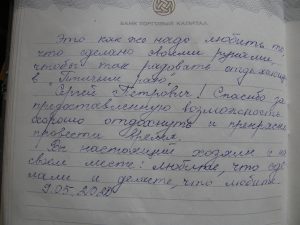 БАНК ТОРГОВЫЙ КАПИТАЛ
Это как же надо любить то,
что сделано своими руками,
чтобы так радовать отдыхающих
в "Птичьем раю".
"Сергей Петрович! Спасибо за
предоставленную возможность
хорошо отдохнуть и прекрасно
провести время.
Вы настоящий хозяин и на
своем месте: любите, что сде-
лали и делаете, что любите.
9.05.2012